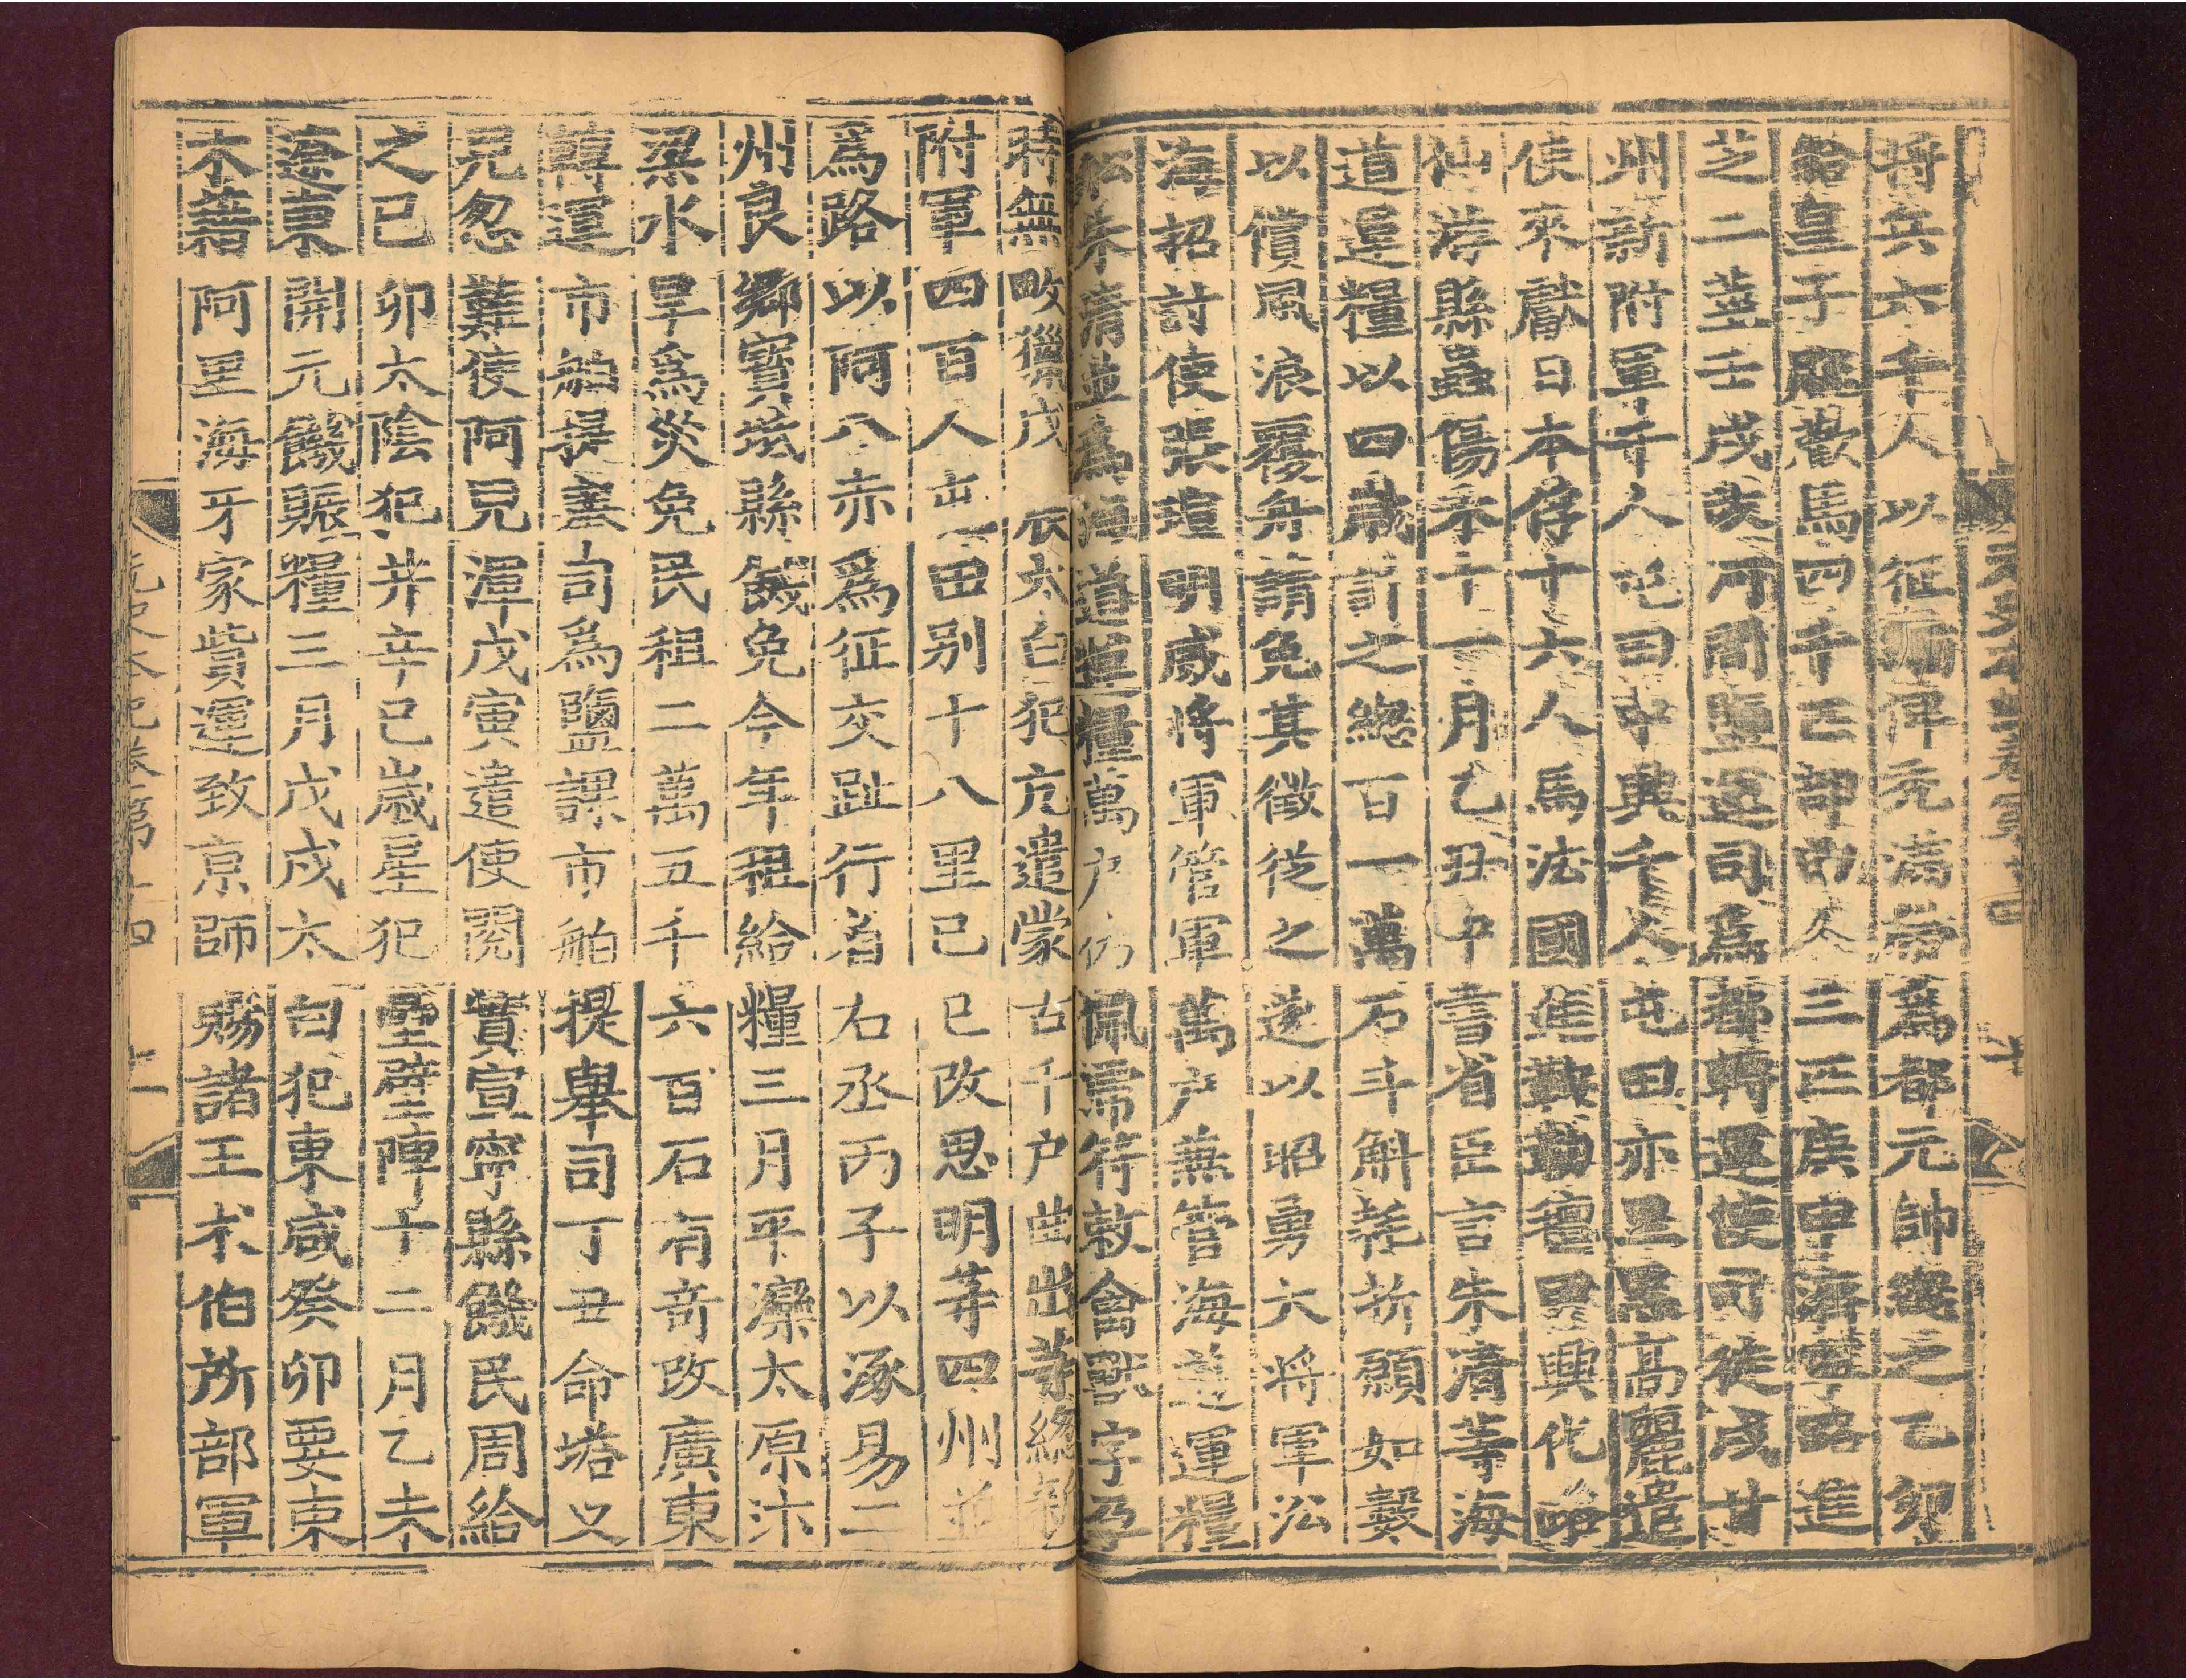 將兵六千人以征緬俾禿滿帶爲都元帥緫之乙卯
給皇子脫歡馬四千匹部曲人三匹庚申濟寧路進
芝二莖壬戌改河間鹽運司爲都轉運使司徙戍甘
州新附軍千人屯田中興千人屯田亦里黑高麗遣
使來獻日本俘十六人馬法國進鞍勒氊甲興化路
仙游縣蟲傷禾十一月乙丑中書省臣言朱清等海
道運糧以四歲計之緫百一萬石斗斛耗折願如數
以償風浪覆舟請免其徵從之遂以昭勇大將軍㳂
海招討使張瑄明威將軍管軍萬户兼管海道運糧
船朱清並爲海道運糧萬户仍佩虎符敕禽獸字孕
時無畋獵戊辰太白犯亢遣蒙古千户曲出等緫新
附軍四百人屯田别十八里己巳改思明等四州並
爲路以阿八赤爲征交趾行省右丞丙子以涿易二
州良鄉寶坻縣饑免今年租給糧三月平灤太原汴
梁水旱爲災免民租二萬五千六百石有奇改廣東
轉運市舶提舉司爲鹽課市舶提舉司丁丑命塔义
兒忽難使阿兒渾戊寅遣使閱實宣寧縣饑民周給
之己卯太陰犯井辛巳歲星犯壘壁陣十二月乙未
遼東開元饑賑糧三月戊戌太白犯東咸癸卯要束
木籍阿里海牙家貲運致京師賜諸王朮伯所部軍